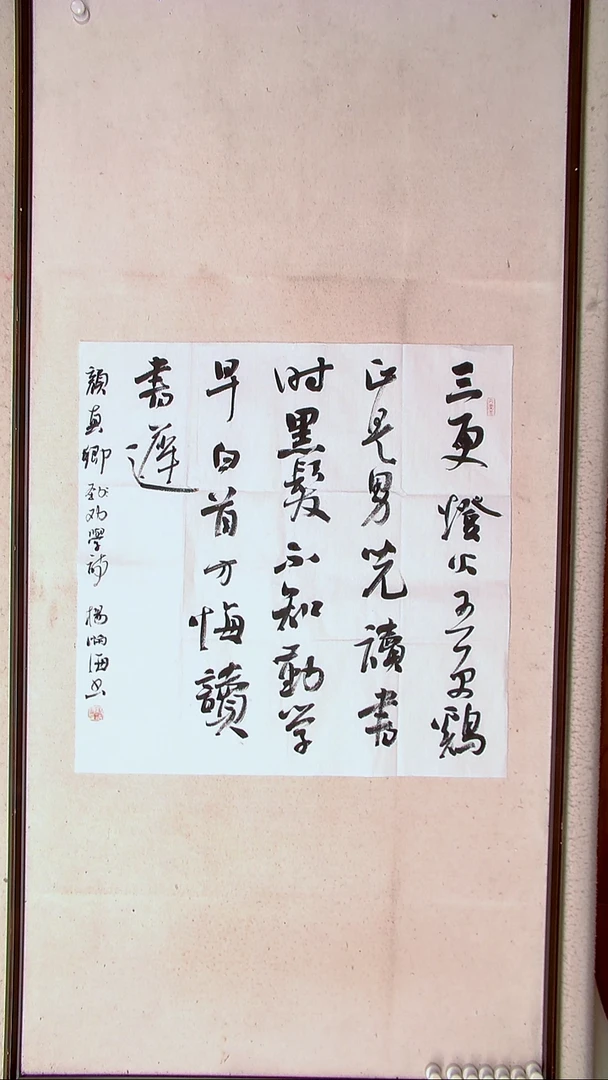 三更燈火五更鷄
正是男児讀書
时黑髮不知勤学
早白首方悔讀
書遲
顏真卿劝學詩 楊海书